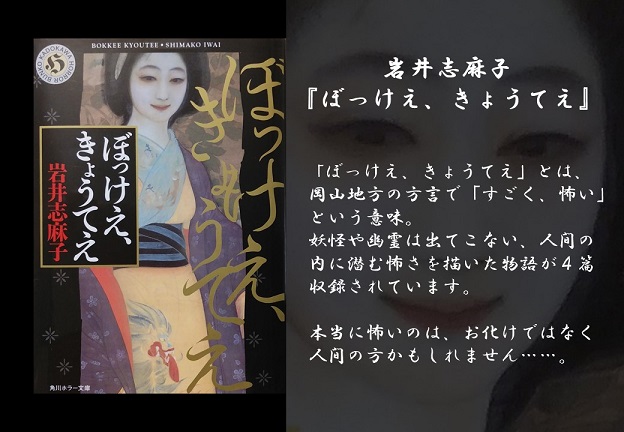 KADOKAWA HORROR BUNKO
H
BOKKEE KYOUTEE・SHIMAKO IWAI
ぼっけえ、
きょうてえ
ぼっけえ、
きょうてえ
岩井志麻子
角川ホラー文庫
岩井志麻子
『ぼっけえ、きょうてえ』
「ぼっけえ、きょうてえ」とは、
岡山地方の方言で「すごく、怖い」
という意味。
妖怪や幽霊は出てこない、人間の
内に潜む怖さを描いた物語が4篇
収録されています。
本当に怖いのは、お化けではなく
人間の方かもしれません……。